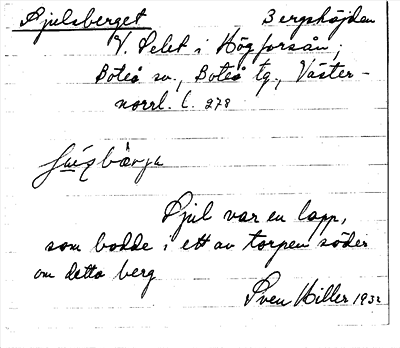 Sjulsberget Bergshöjden
V. Selet i Högforsån,
Boteå sn., Boteå tg., Väster-
norrl. l. 278
Sjul var en lapp,
som bodde i ett av torpen söder
om detta berg
Sven Hiller 1932